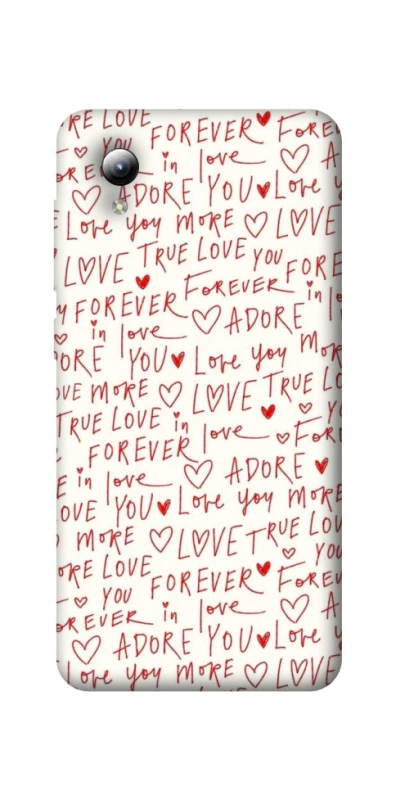 RE LOVE YOU FOREVER ♥ FOREV
FOREVER in love ♡ A
♡ ADORE YOU ♥ Love y
Love you MORE ♡ LOVE
LOVE TRUE LOVE YOU FORE
FOREVER FOREVER in
in love ♡ ADORE
ORE YOU ♥ Love you MOR
OVE MORE ♡ LOVE TRUE LO
TRUE LOVE in love YO
FOREVER ♡ FOR
E in love ♡ ADORE ♥
OVE YOU ♥ Love you MORE
MORE ♡ LOVE TRUE LOV
ORE LOVE ♡ YOU
♡ YOU FOREVER ♥ FOREV
FOREVER in love ♡ A
♡ ADORE YOU ♥ Love y
Love you MORE ♡ LOVE